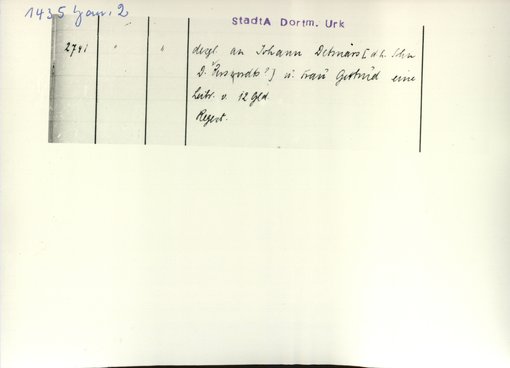 1435 Jan. 2
StadtA Dortm. Urk
2741 " " desgl. an Johann Detmars [d. h. Sohn
D. ] u. Frau Gertrud eine
Leibr. v. 12 Gld.
Regest.